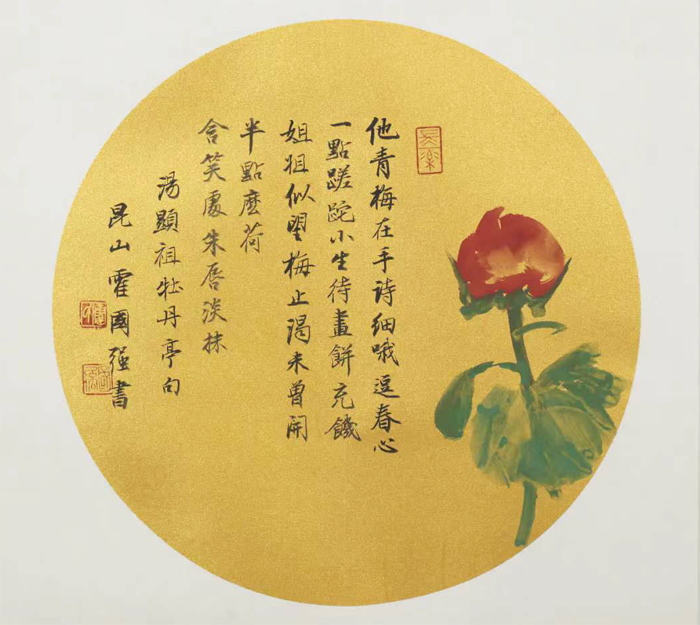 他青梅在手詩細哦逗春心
一點蹉跎小生待畫餅充饑
姐姐似望梅止渴未曾開
半點麽荷
含笑處朱唇淡抹
湯顯祖牡丹亭句
昆山霍國强書